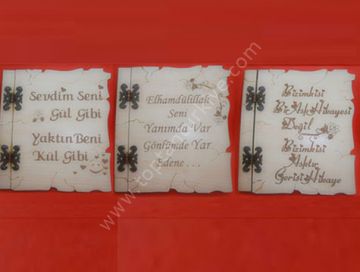 Sevdim Seni
Gül Gibi
Yaktın Beni
Kül Gibi
Elhamdülillah
Seni
Yanımda Var
Gönlümde Yar
Edene . . .
Bizimkisi
Bir Aşk Hikayesi
Değil
Bizimkisi
Aşktır
Gerisi Hikaye